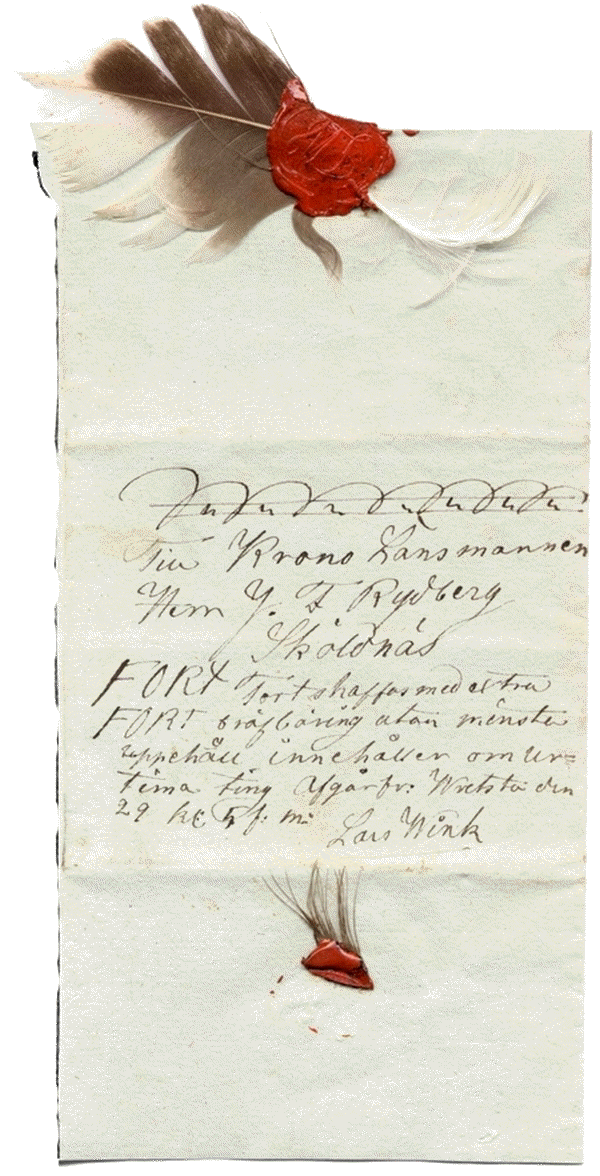 Till Krono Länsmannen
Herr J. F Rydberg
Sköldnäs
FORT Fortskaffas med extra
FORT bräfbäring utan minsta
uppehåll innehåller om Ur=
tima ting Afgår fr: Wretsta den
29 kl: 5 f: m:
Lars Wink